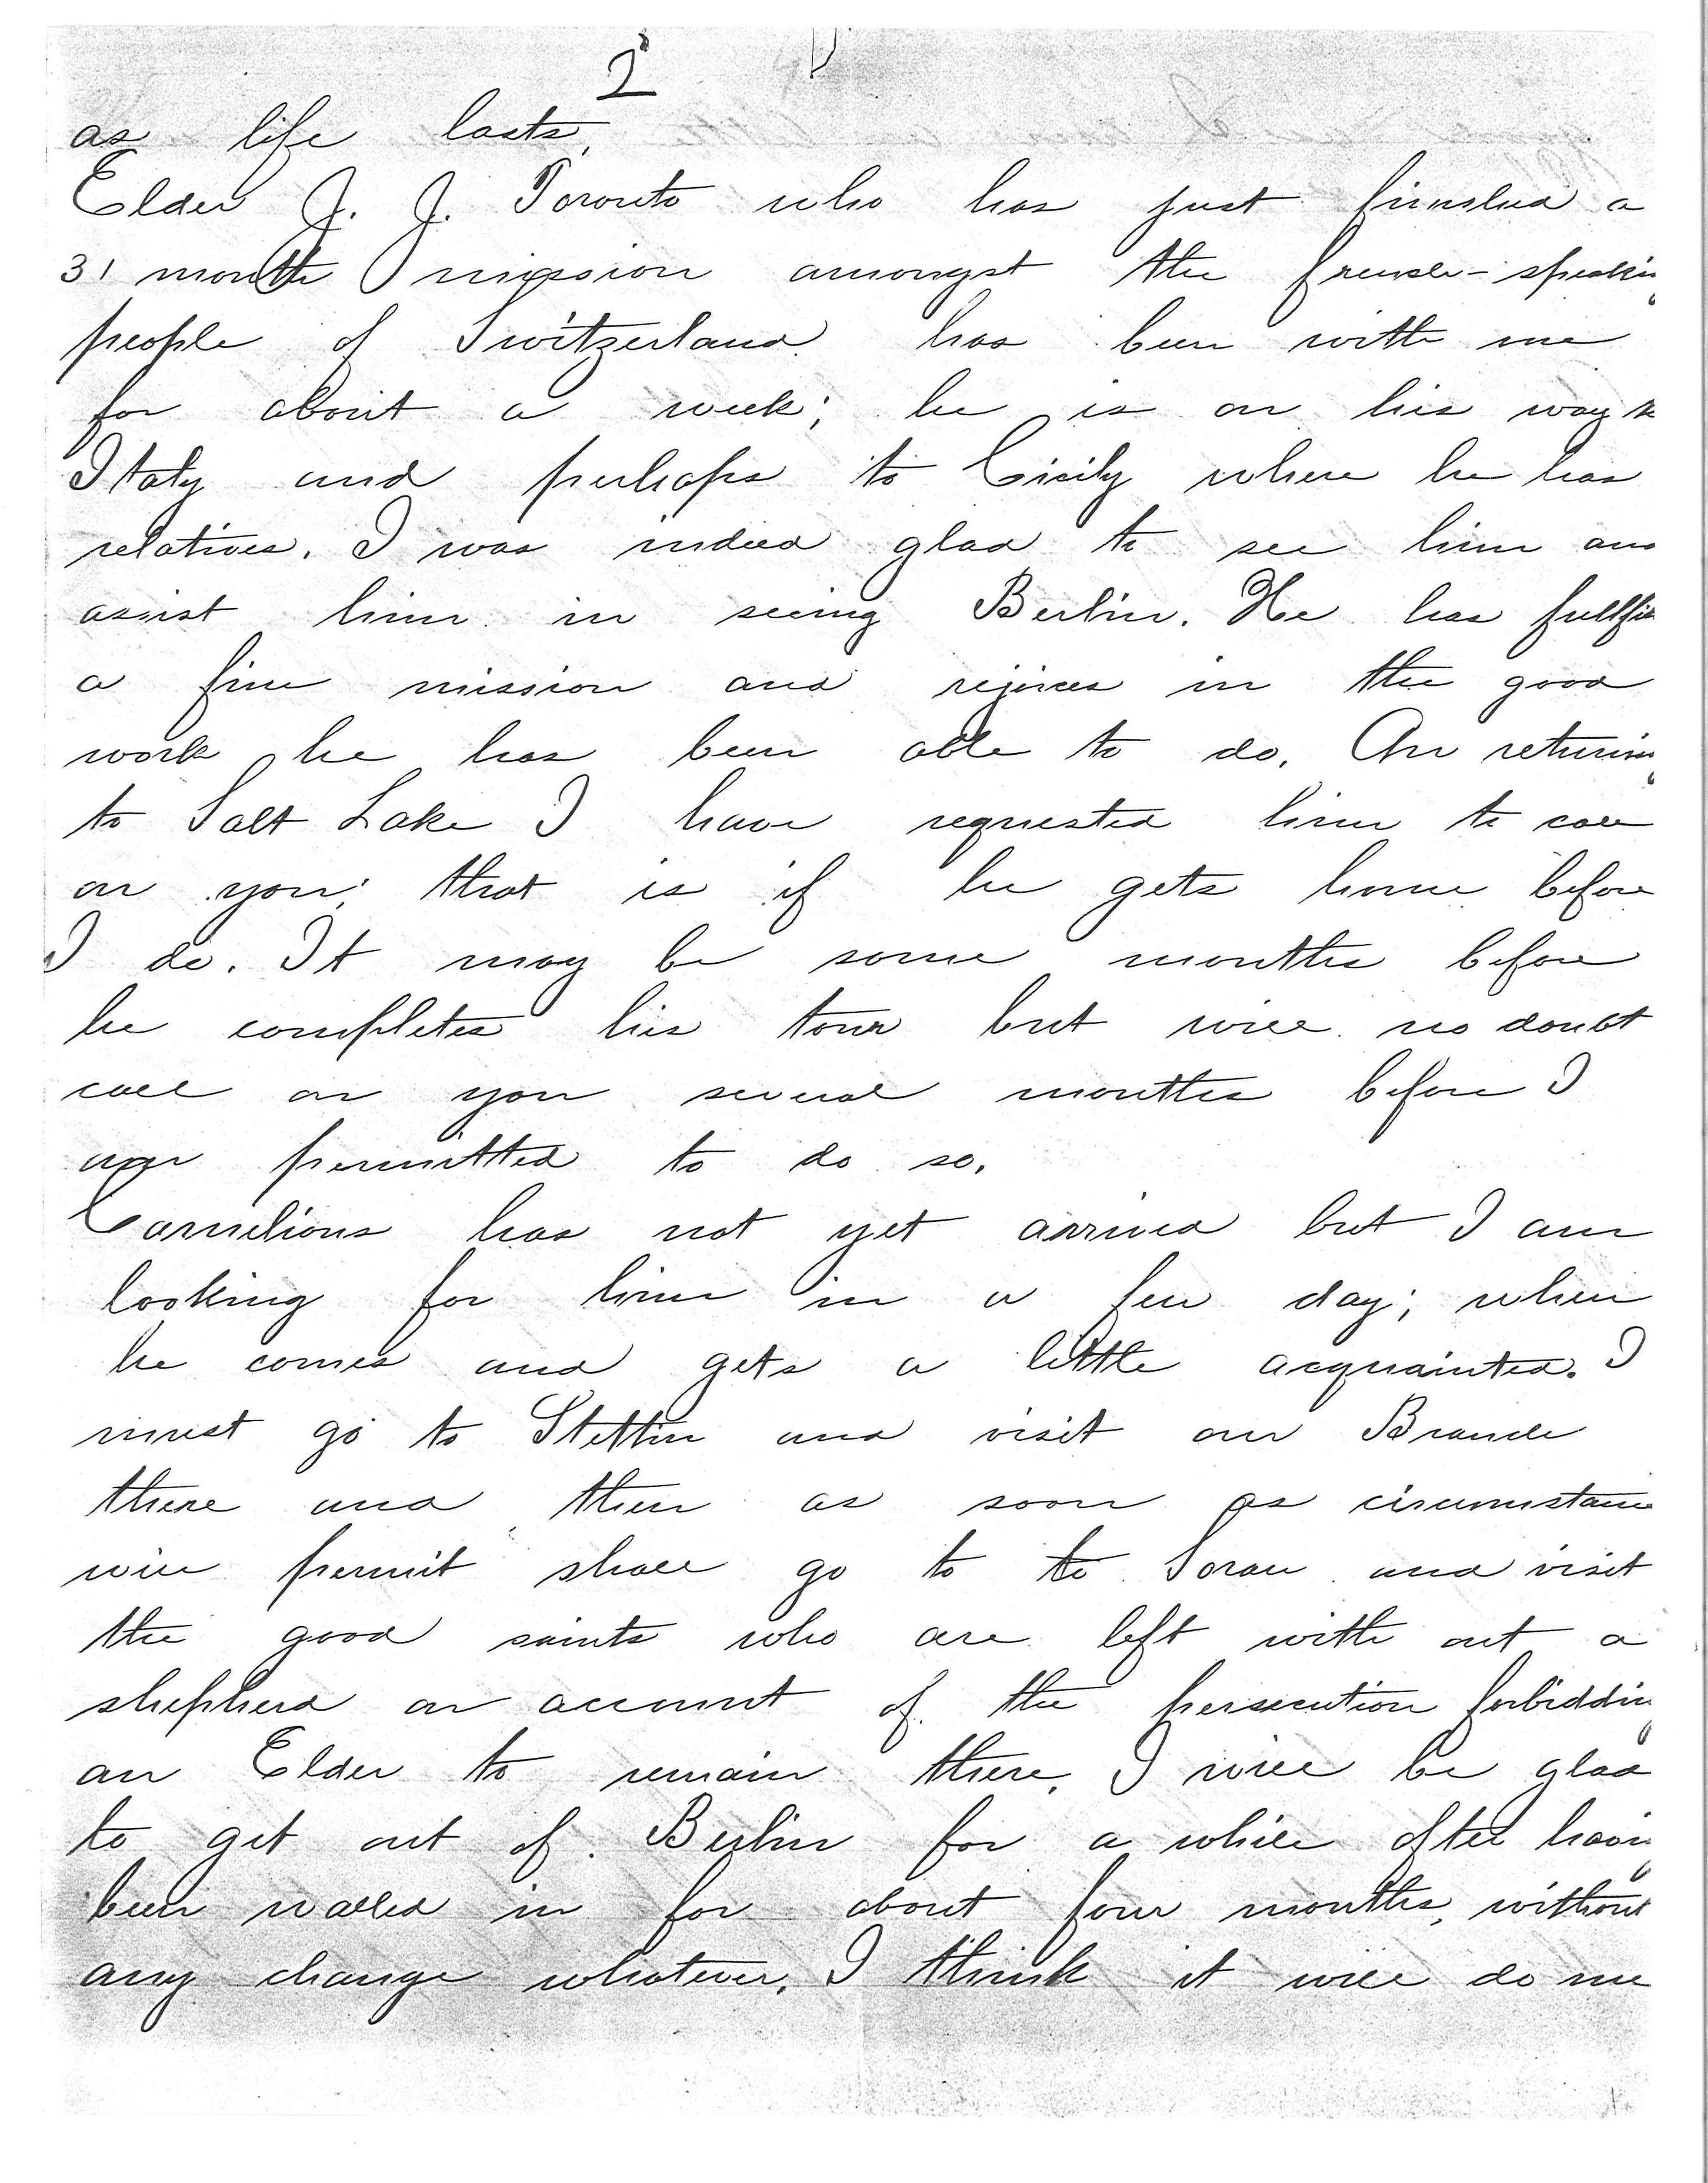 2
as life lasts.
Elder J. J. Toronto who has just finished a
31 month mission amongst the french-speakin
people of Switzerland has been with me
for about a week; he is on his way to
Italy and perhaps to Cicily where he has
relatives. I was indeed glad to see him and
assist him in seeing Berlin. He has fullfil
a fine mission and rejoices in the good
work he has been able to do. On returning
to Salt Lake I have requested him to call
on you; that is if he gets home before
I do. It may be some months before
he completes his tour but will no doubt
call on you several months before I
am permitted to do so.
Cornelious has not yet arrived but I am
looking for him in a few day; when
he comes and gets a little acquainted. I
must go to Stettin and visit our Branch
there and then as soon as circumstance
will permit shall go to to Sorau and visit
the good saints who are left with out a
shepherd on account of the persecution forbidding
an Elder to remain there. I will be glad
to get out of Berlin for a while after having
been walled in for about four months, without
any change whatever. I think it will do me